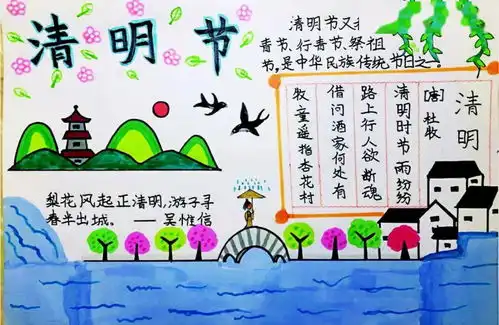 清明节
清明节又
青节、行青节、祭祖
节,是中华民族传统节日之一
清明
[唐]杜牧
清明时节雨纷纷
路上行人欲断魂
借问酒家何处有
牧童遥指杏花村
梨花风起正清明,游子寻
春半出城。——吴惟信